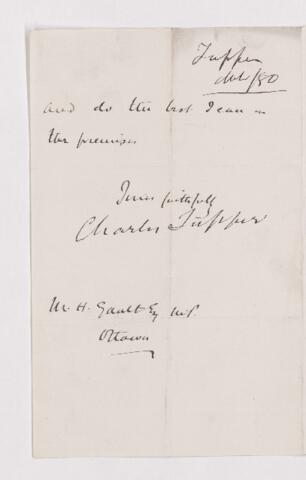 Tupper
/80
and do the best I can in
the premises
Yours faithfully
Charles Tupper
M. H. Gault Esq M.P.
Ottawa